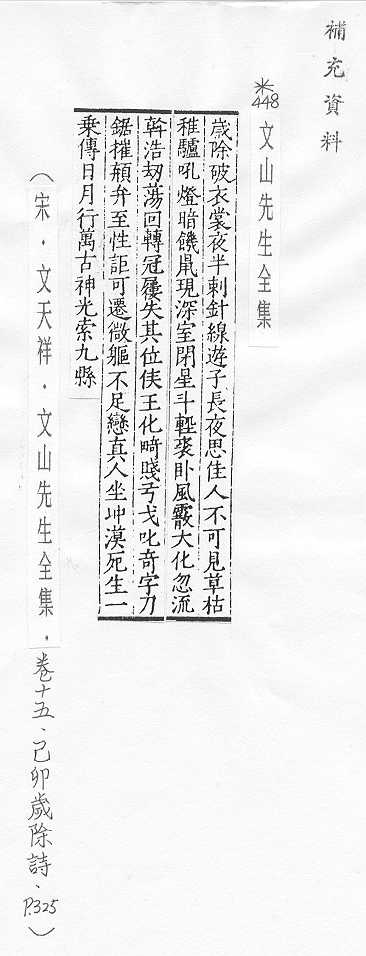 補充資料
※448 文山先生全集
歲除破衣裳夜半刺針線遊子長夜思佳人不可見草枯
稚驢吼燈暗饑鼠現深室閉星斗輕裘臥風霰大化忽流
斡浩劫蕩回轉冠屨失其位侯王化畸賤弓戈叱奇字刀
鋸摧顛弁至性詎可遷微軀不足戀真人坐冲漠死生一
乘傳日月行萬古神光索九縣
（宋．文天祥．文山先生全集．卷十五、己卯歲除詩、P.325）